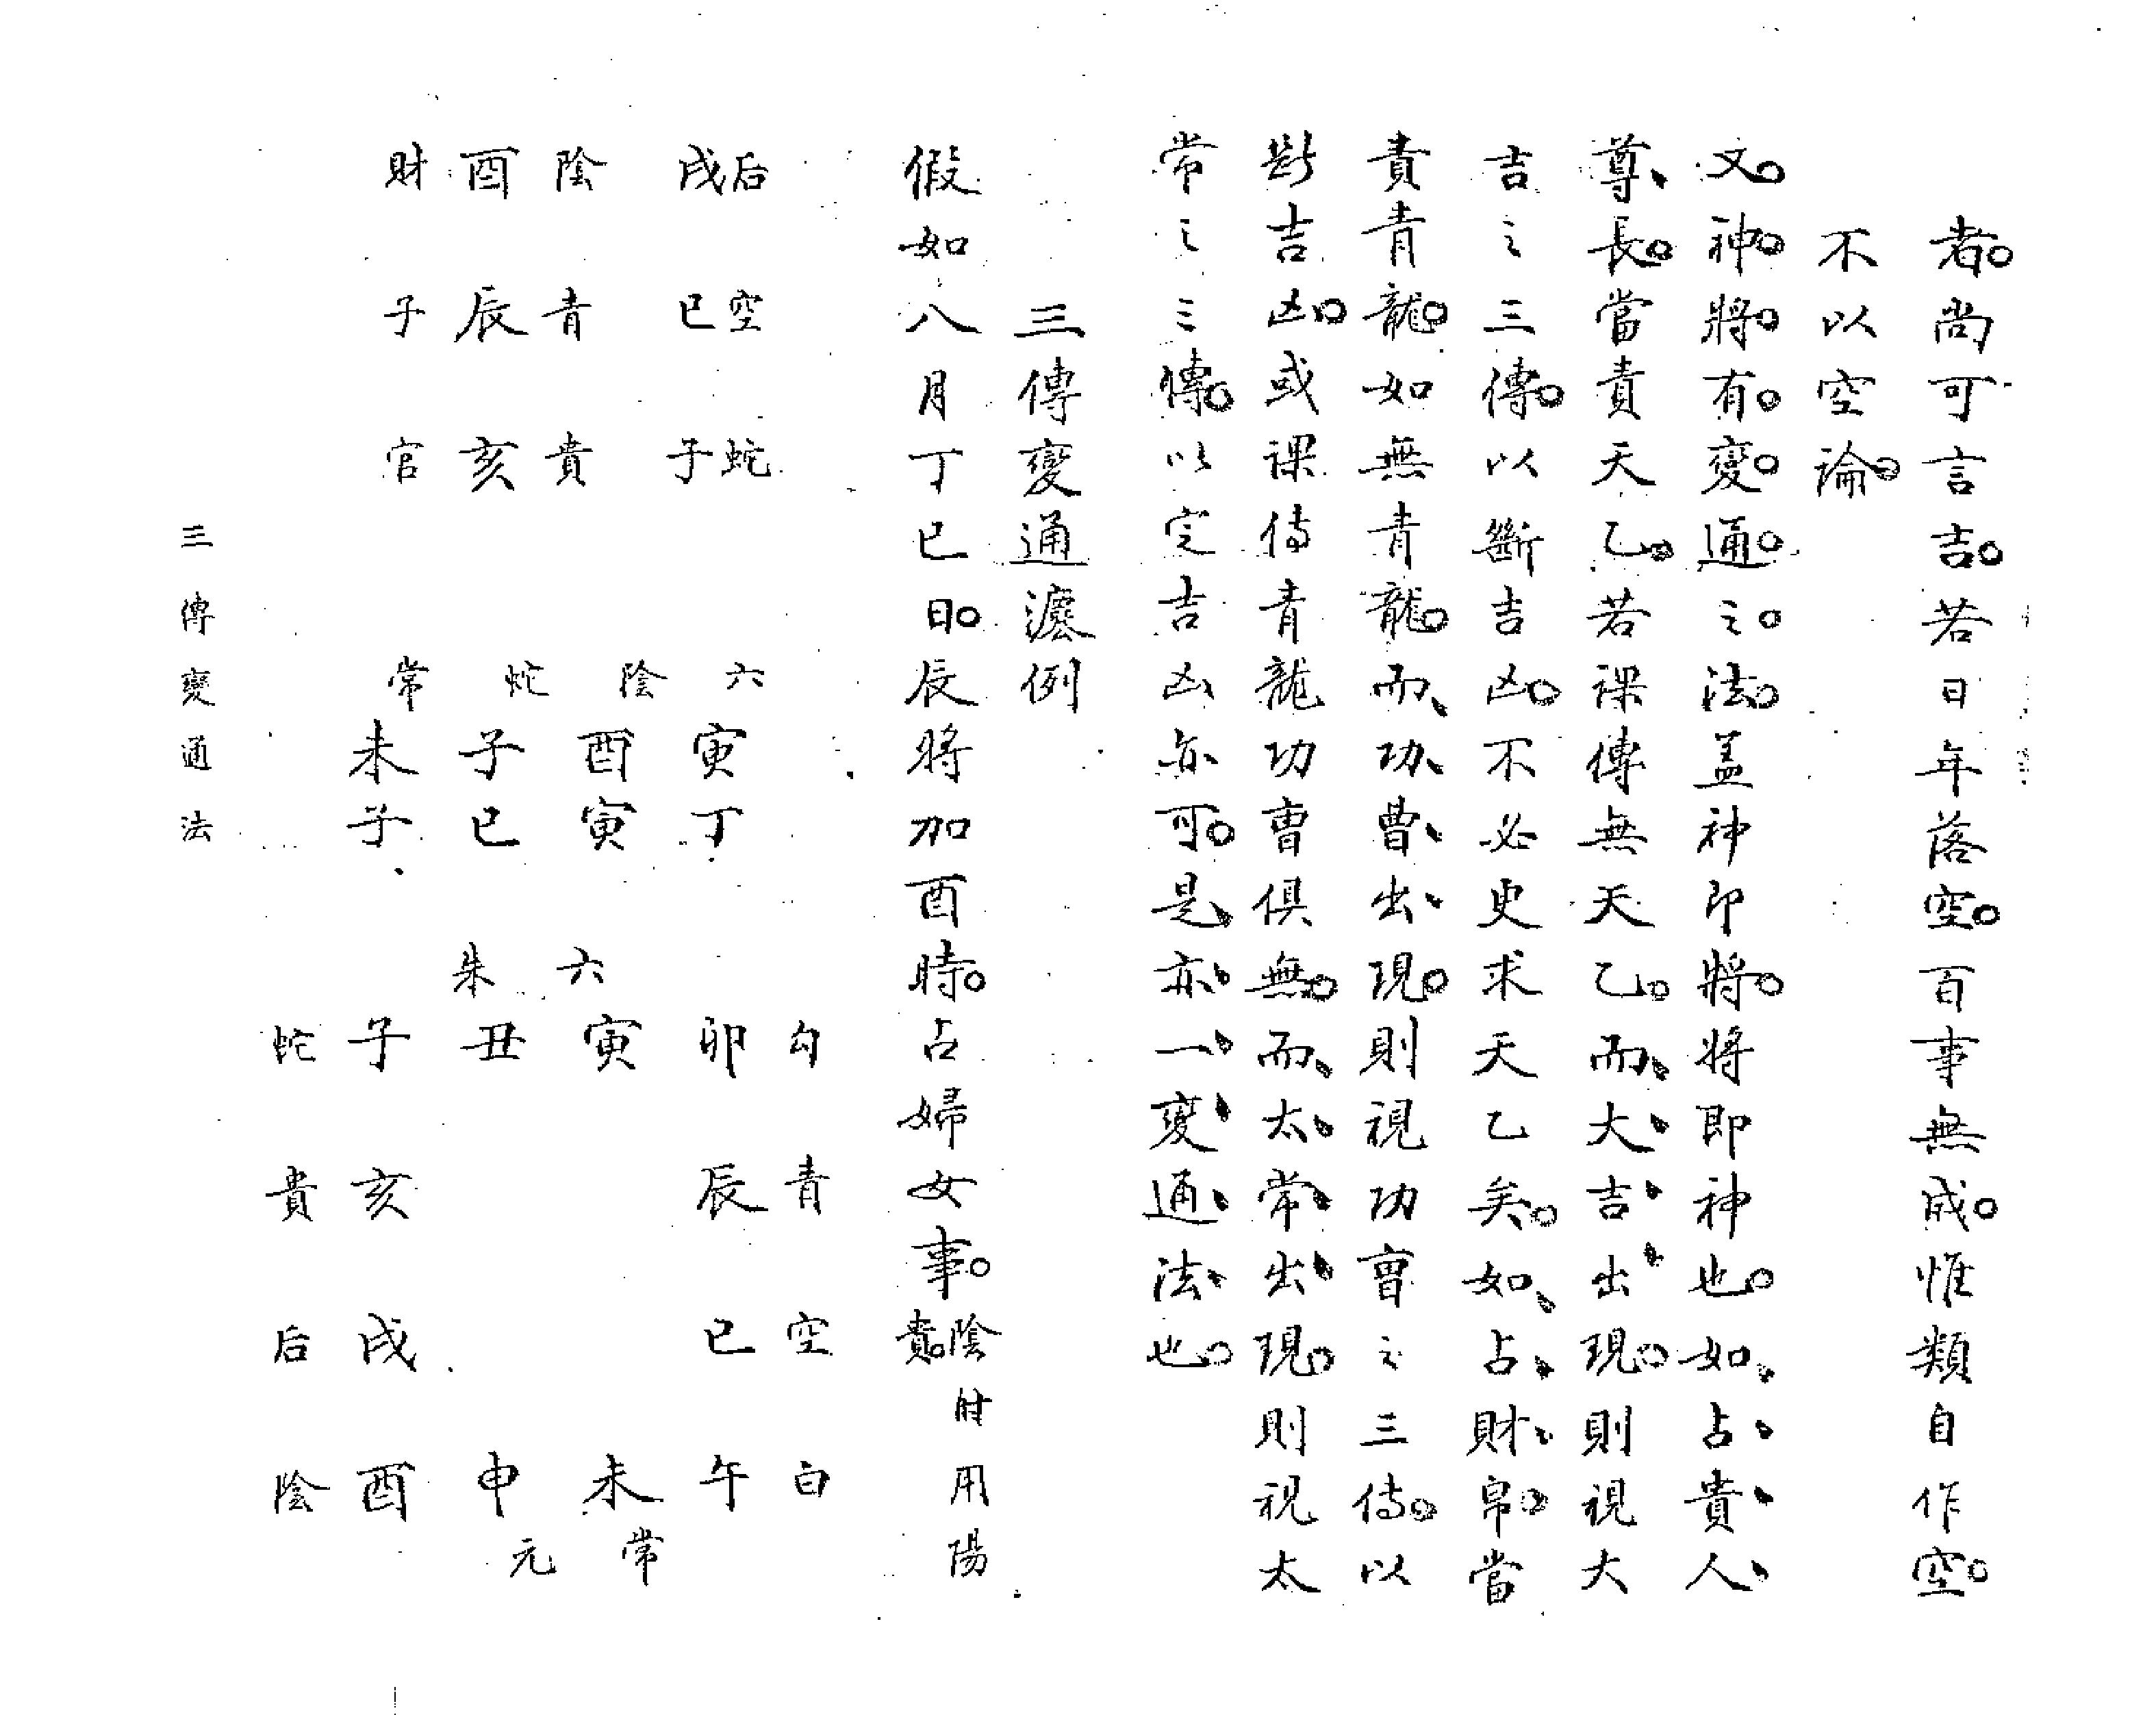 者。尚可言吉。若日年落空。百事無成。惟類自作空。
不以空論。
文。神。將。有。變。通。之。法。蓋神即將。將即神也。如、占、貴、人、
尊、長。當責天乙。若課傳無天乙。而、大、吉、出、現。則視大
吉之三傳。以斷吉凶。不必更求天乙矣。如、占、財、帛。當
責青龍。如無青龍。而、功、曹、出、現。則視功曹之三傳。以
斷吉凶。或課傳青龍功曹俱無。而、太、常、出、現。則視太
常之三傳。以定吉凶亦可。是、亦、一、變、通、法、也。
三傳變通濾例
假如八月丁巳日。辰將加酉時。占婦女事。陰時用陽貴。
后戌 空巳 蛇子
陰 青 貴
酉 辰 亥
財 子 官
六 陰 蛇 常
寅 酉 子 未
丁 寅 巳 子
勾 青 空 白
卯 辰 巳 午
六 朱
寅 丑
未 申
常 元
子 亥 戌 酉
蛇 貴 后 陰
三傳變通法